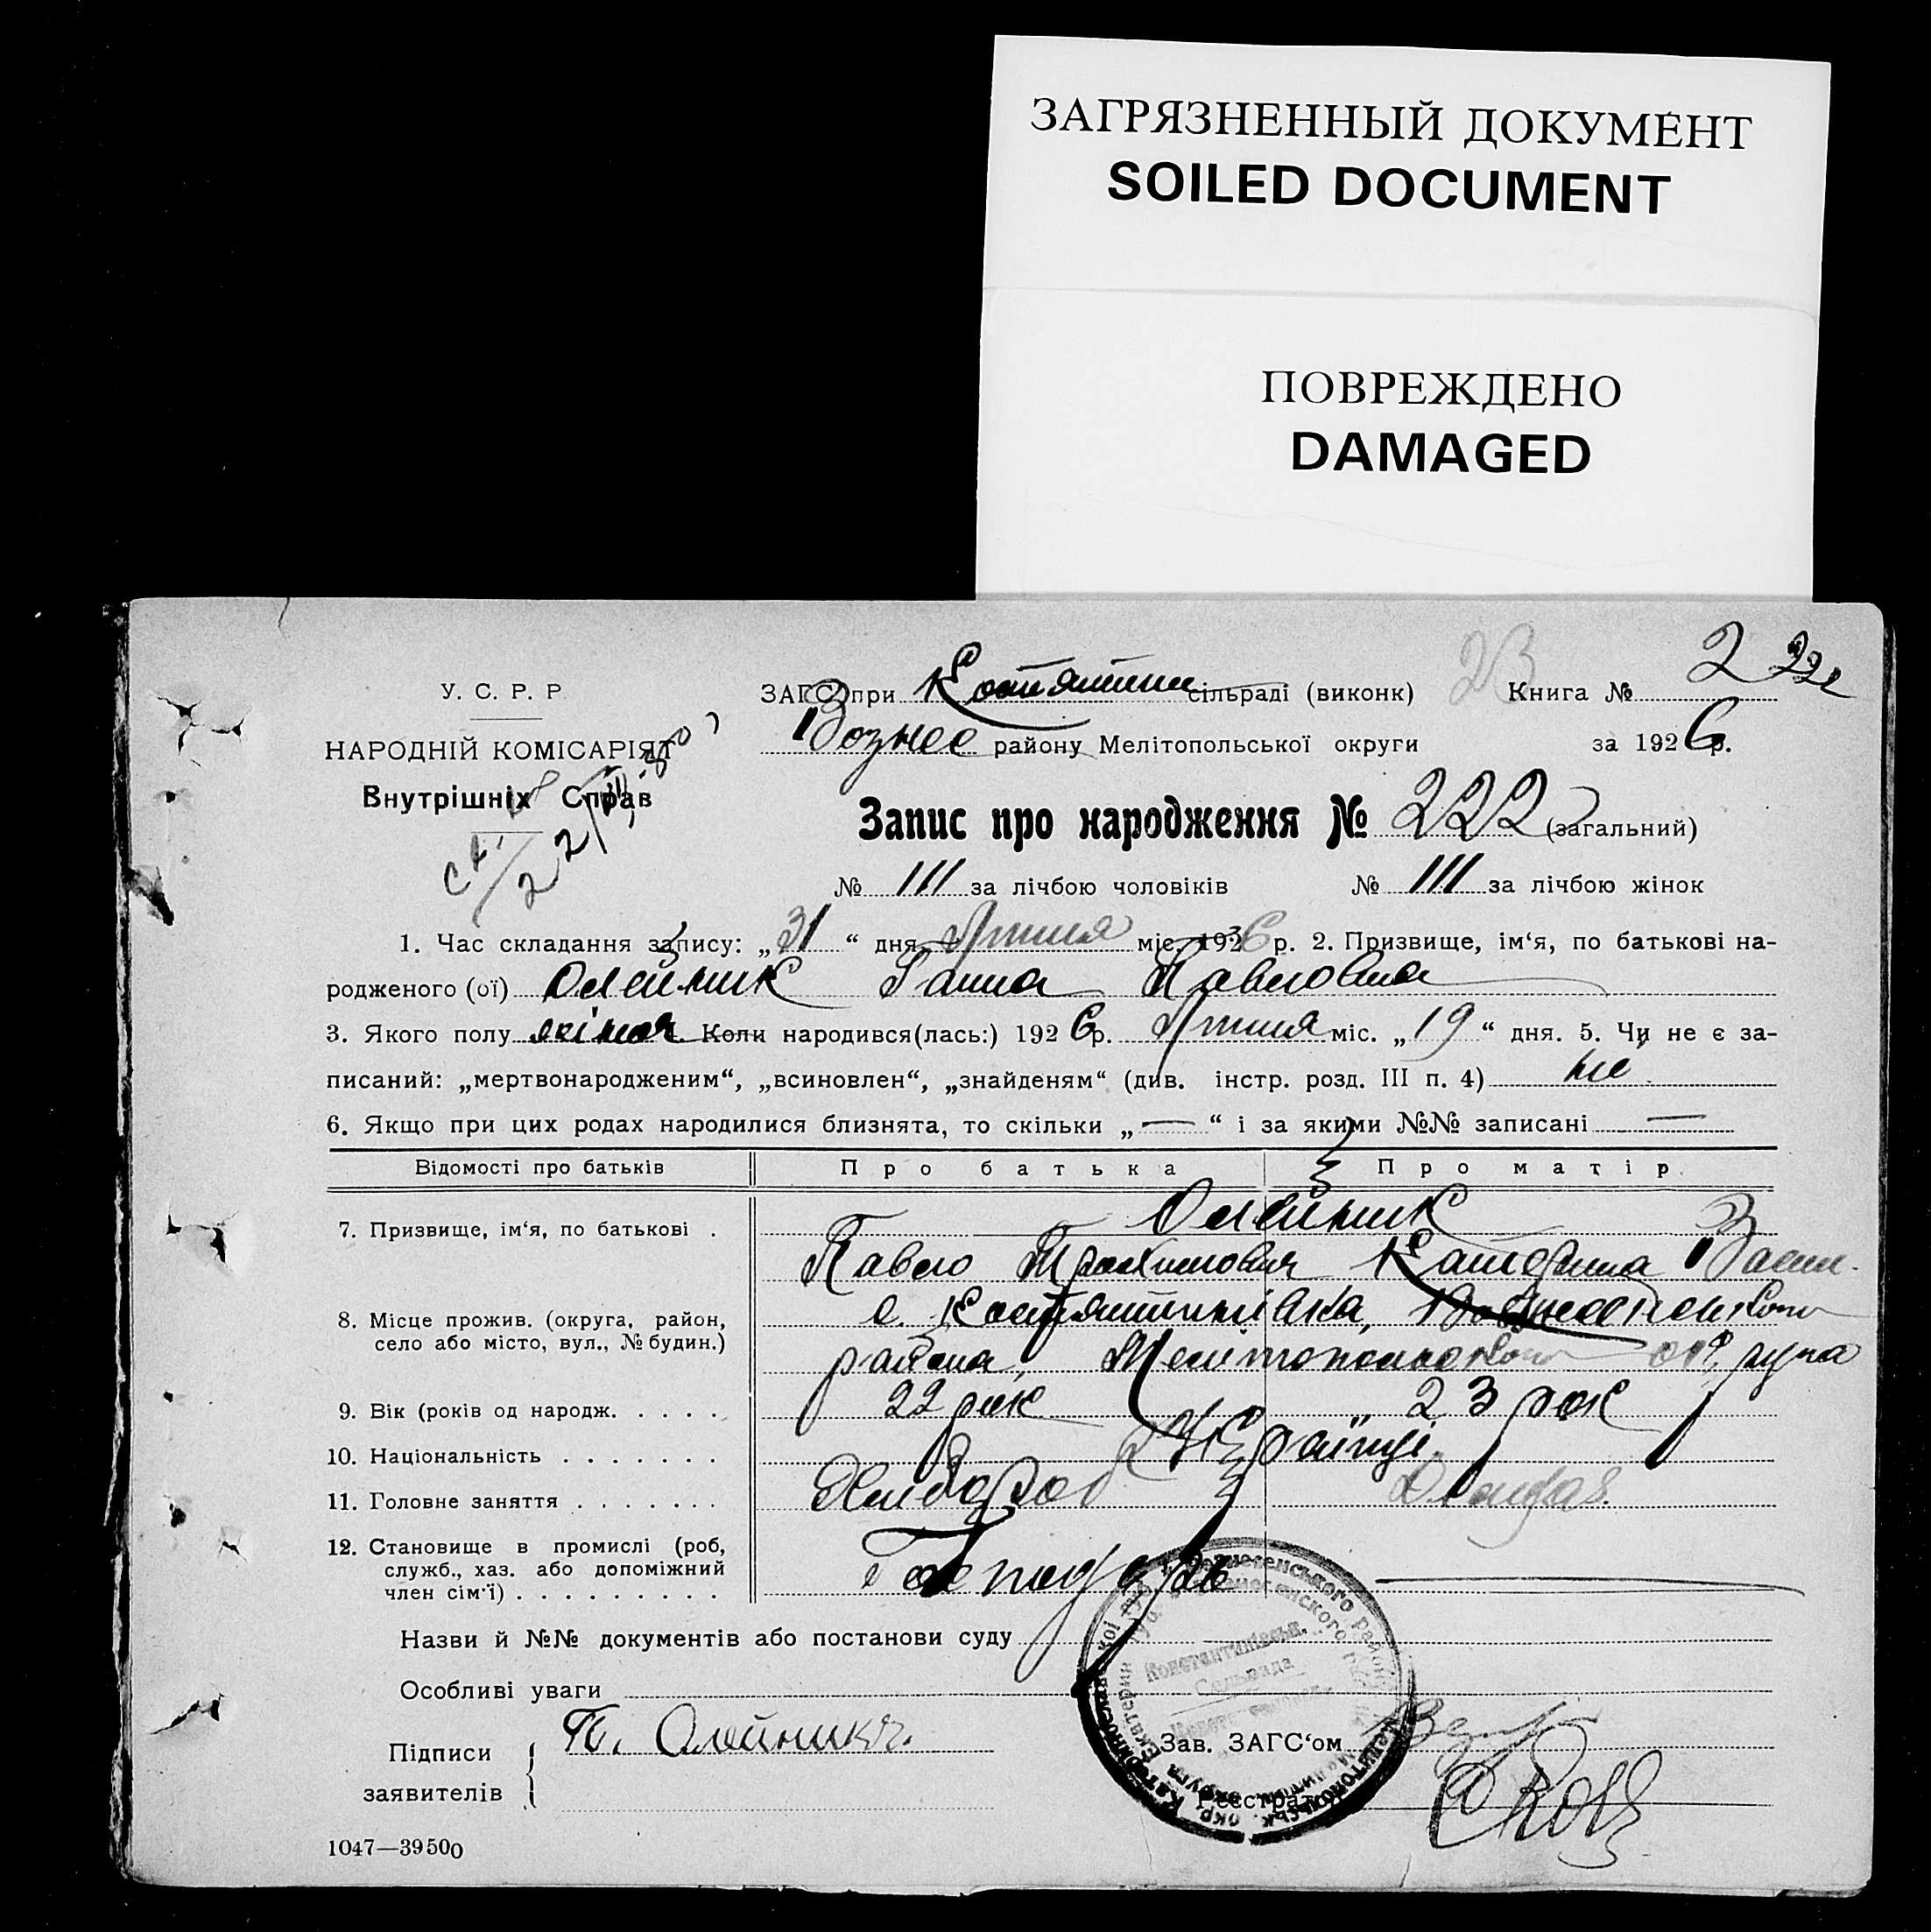 ЗАГРЯЗНЕННЫЙ ДОКУМЕНТ
SOILED DOCUMENT
ПОВРЕЖДЕНО
DAMAGED
23 2 222
У. С. Р. Р
НАРОДНІЙ КОМІСАРІЯТ
Внутрішніх Справ
ЗАГС при Костянтин сільраді (виконк) Книга №
Вознес району Мелітопольської округи за 1926 р.
Запис про народження № 222 (загальний)
№ 111 за лічбою чоловіків № 111 за лічбою жінок
1. Час складання запису: „31“ дня Липня міс. 1926 р. 2. Призвище, ім‘я, по батькові на-
родженого (ої) Олейник Ганна Павловна
3. Якого полу жіноч. Коли народився(лась:) 1926 р. Липня міс. „19“ дня. 5. Чи не є за-
писаний: „мертвонародженим“, „всиновлен“, „знайденям“ (див. інстр. розд. III п. 4) не
6. Якщо при цих родах народилися близнята, то скільки „—“ і за якими №№ записані —
Відомості про батьків Про батька Про матір
7. Призвище, ім‘я, по батькові . Олейник
Павло Трохимович Катерина Васил.
8. Місце прожив. (округа, район,
село або місто, вул., № будин.)
с. Костянтинівка, Вознесенського
района, Мелітопольського округа
9. Вік (років од народж. . . . . 22 рок 23 рок
10. Національність . . . . . . . Українці
11. Головне заняття . . . . . . . Хлібороб
12. Становище в промислі (роб,
служб., хаз. або допоміжний
член сім‘ї) . . . . . . . . . Господарь —
Назви й №№ документів або постанови суду
Особливі уваги
Підписи
заявителів
П. Олейникъ.
Константинівськ.
Сельрада
Зав. ЗАГС‘ом
Реєстратор
1047—39500